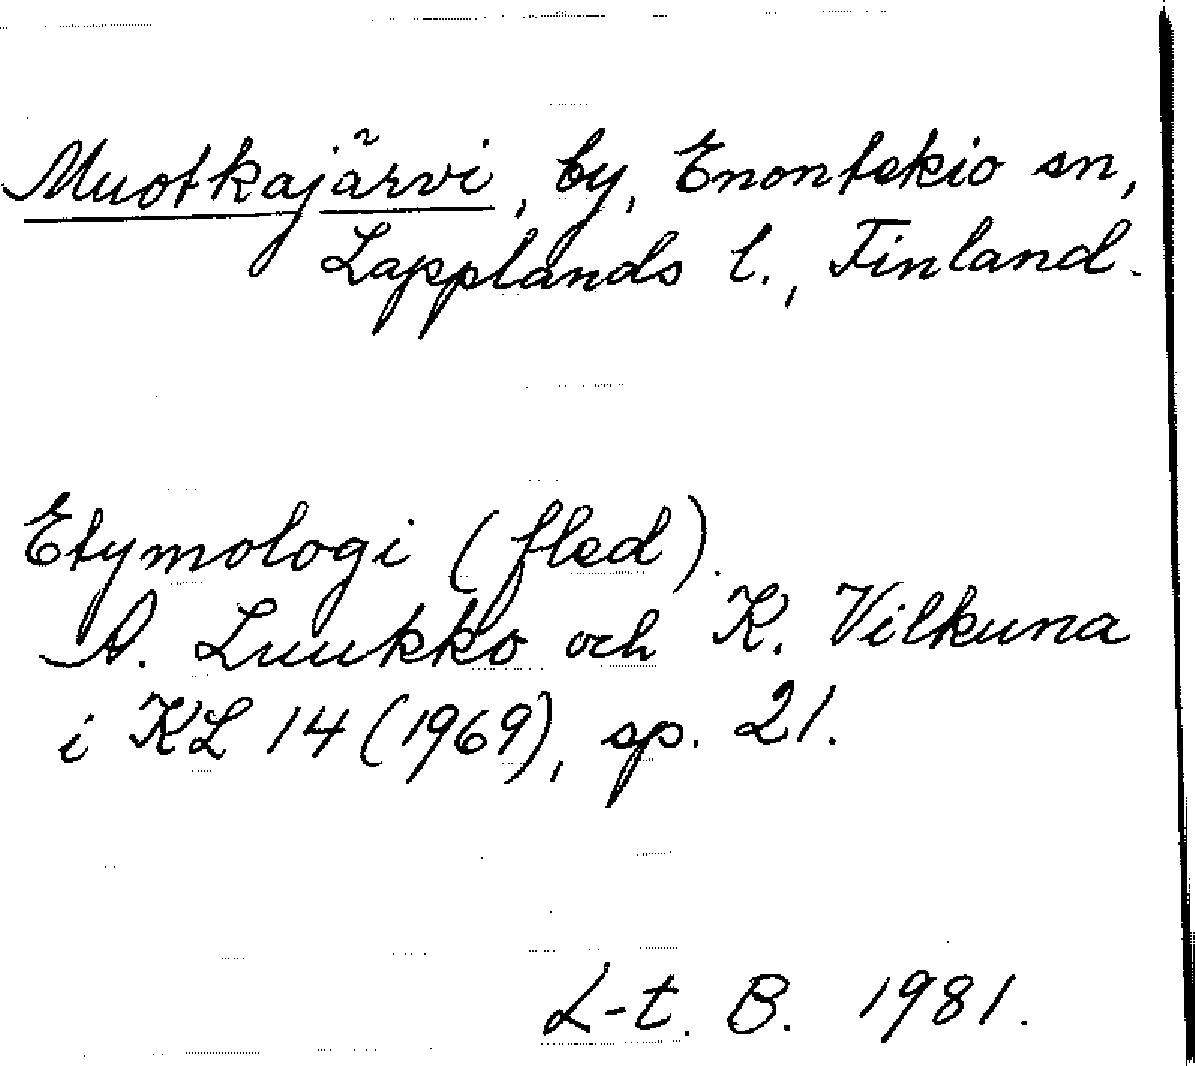 Muotkajärvi, by, Enontekio sn,
Lapplands l., Finland.
Etymologi (fled).
A. Luukko och K. Vilkuna
i KL 14 (1969), sp. 21.
L-t. B. 1981.